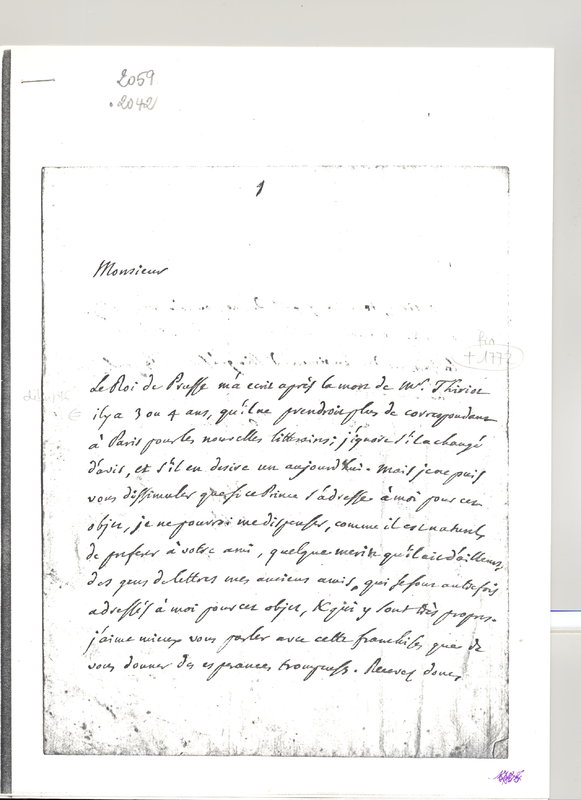 2059
2042
1
Monsieur
fin
+ 1772
Le Roi de Prusse m'a ecrit après la mort de Mr. Thiriot
il y a 3 ou 4 ans, qu'il ne prendroit plus de correspondant
à Paris pour les nouvelles litteraires; j'ignore s'il a changé
d'avis, et s'il en desire un aujourd'hui. mais je ne puis
vous dissimuler que si ce Prince s'adresse à moi pour cet
objet, je ne pourrai me dispenser, comme il est naturel,
de preferer à votre ami, quelque merite qu'il ait d'ailleurs,
des gens de lettres mes anciens amis, qui se sont autrefois
adressés à moi pour cet objet, & qui y sont très propres.
j'aime mieux vous parler avec cette franchise, que de
vous donner des esperances trompeuses. Recevez donc,